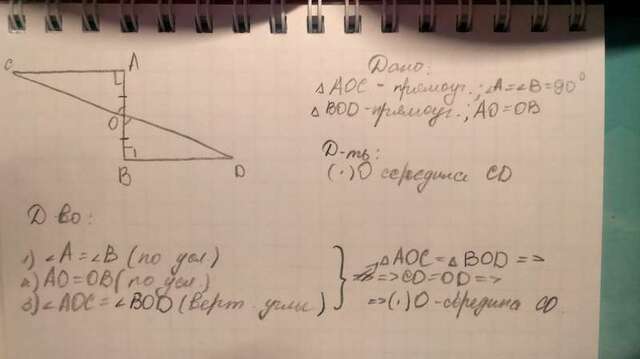 C A
O
B D
Дано:
△AOC - прямоуг.; ∠A=∠B=90°
△BOD - прямоуг.; AO=OB
Д-ть:
(·)O середина CD
Д-во:
1) ∠A=∠B (по усл.)
2) AO=OB (по усл.)
3) ∠AOC=∠BOD (верт. углы)
△AOC=△BOD =>
=> CO=OD =>
=> (·)O - середина CD.